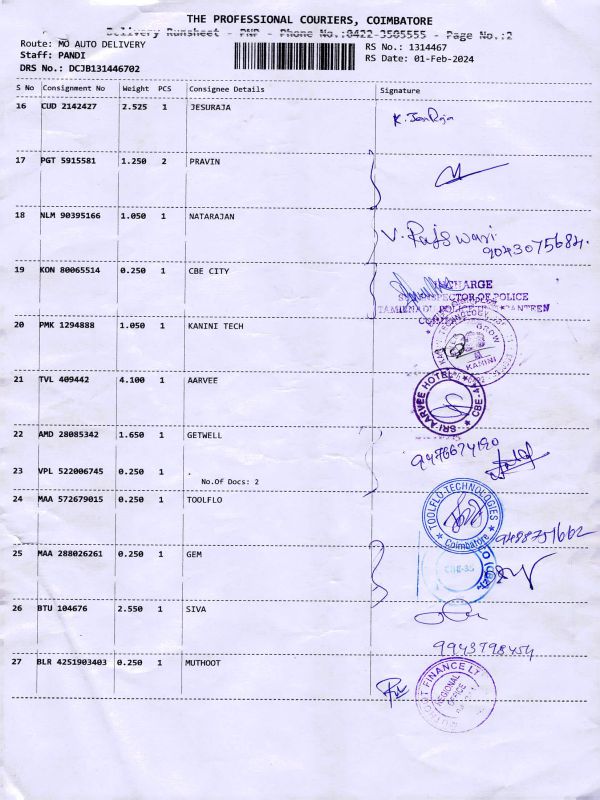 THE PROFESSIONAL COURIERS, COIMBATORE
Delivery Runsheet - PNP - Phone No.:0422-3505555 - Page No.:2
Route: MO AUTO DELIVERY
RS No.: 1314467
Staff: PANDI
RS Date: 01-Feb-2024
DRS No.: DCJB131446702
S No Consignment No Weight PCS Consignee Details Signature
16 CUD 2142427 2.525 1 JESURAJA
17 PGT 5915581 1.250 2 PRAVIN
18 NLM 90395166 1.050 1 NATARAJAN
V. Rajswari
9043075684
19 KON 80065514 0.250 1 CBE CITY
INCHARGE
SUB INSPECTOR OF POLICE
TAMILNADU POLICE CANTEEN
20 PMK 1294888 1.050 1 KANINI TECH
GROW
KANINI
21 TVL 409442 4.100 1 AARVEE
SRI AARVEE HOTEL
CBE-44
22 AMD 28085342 1.650 1 GETWELL
9476674190
23 VPL 522006745 0.250 1 .
No.Of Docs: 2
24 MAA 572679015 0.250 1 TOOLFLO
TOOLFLO TECHNOLOGIES
Coimbatore
9488751662
25 MAA 288026261 0.250 1 GEM
CBE-35
26 BTU 104676 2.550 1 SIVA
9943798454
27 BLR 4251903403 0.250 1 MUTHOOT
MUTHOOT FINANCE LT
REGIONAL
OFFICE